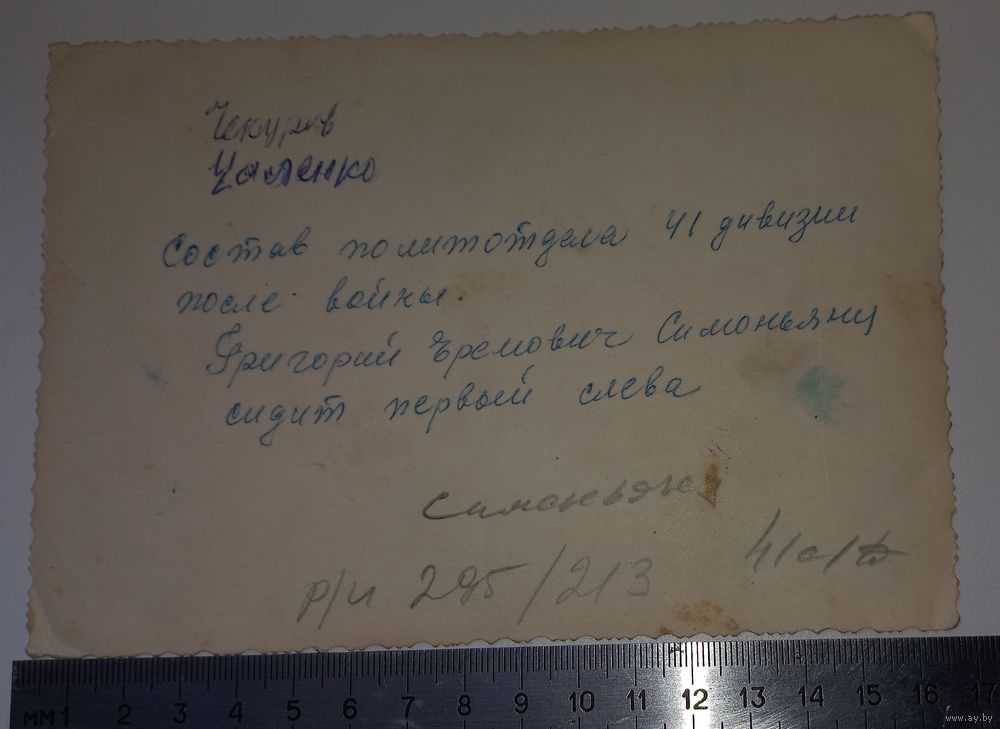 Чекуров
Цаленко
Состав политотдела 41 дивизии
после войны.
Григорий Еремович Симоньянц
сидит первый слева
Симоньянц
р/и 295/213
41 с/д
мм 1 2 3 4 5 6 7 8 9 10 11 12 13 14 15 16 17
www.ay.by